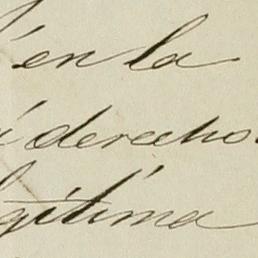 en la
derecho
legítima